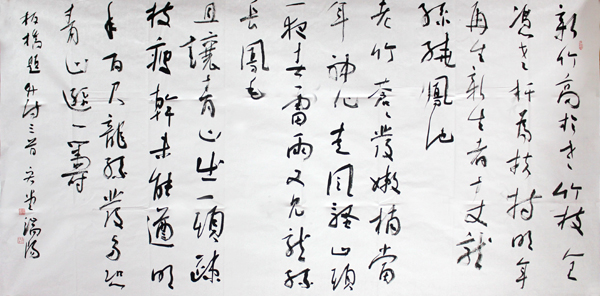 新竹高於老竹枝全
憑老杆為扶持明年
再生新生者十丈龍
孫繞鳳池
老竹蒼蒼發嫩梢當
年神化走風騷山頭
一夜春雷雨又見龍孫
長鳳毛
且讓青山出一頭疎
枝瘦幹未能遒明
年百尺龍孫發多恐
青山遜一籌
板橋題竹詩三首